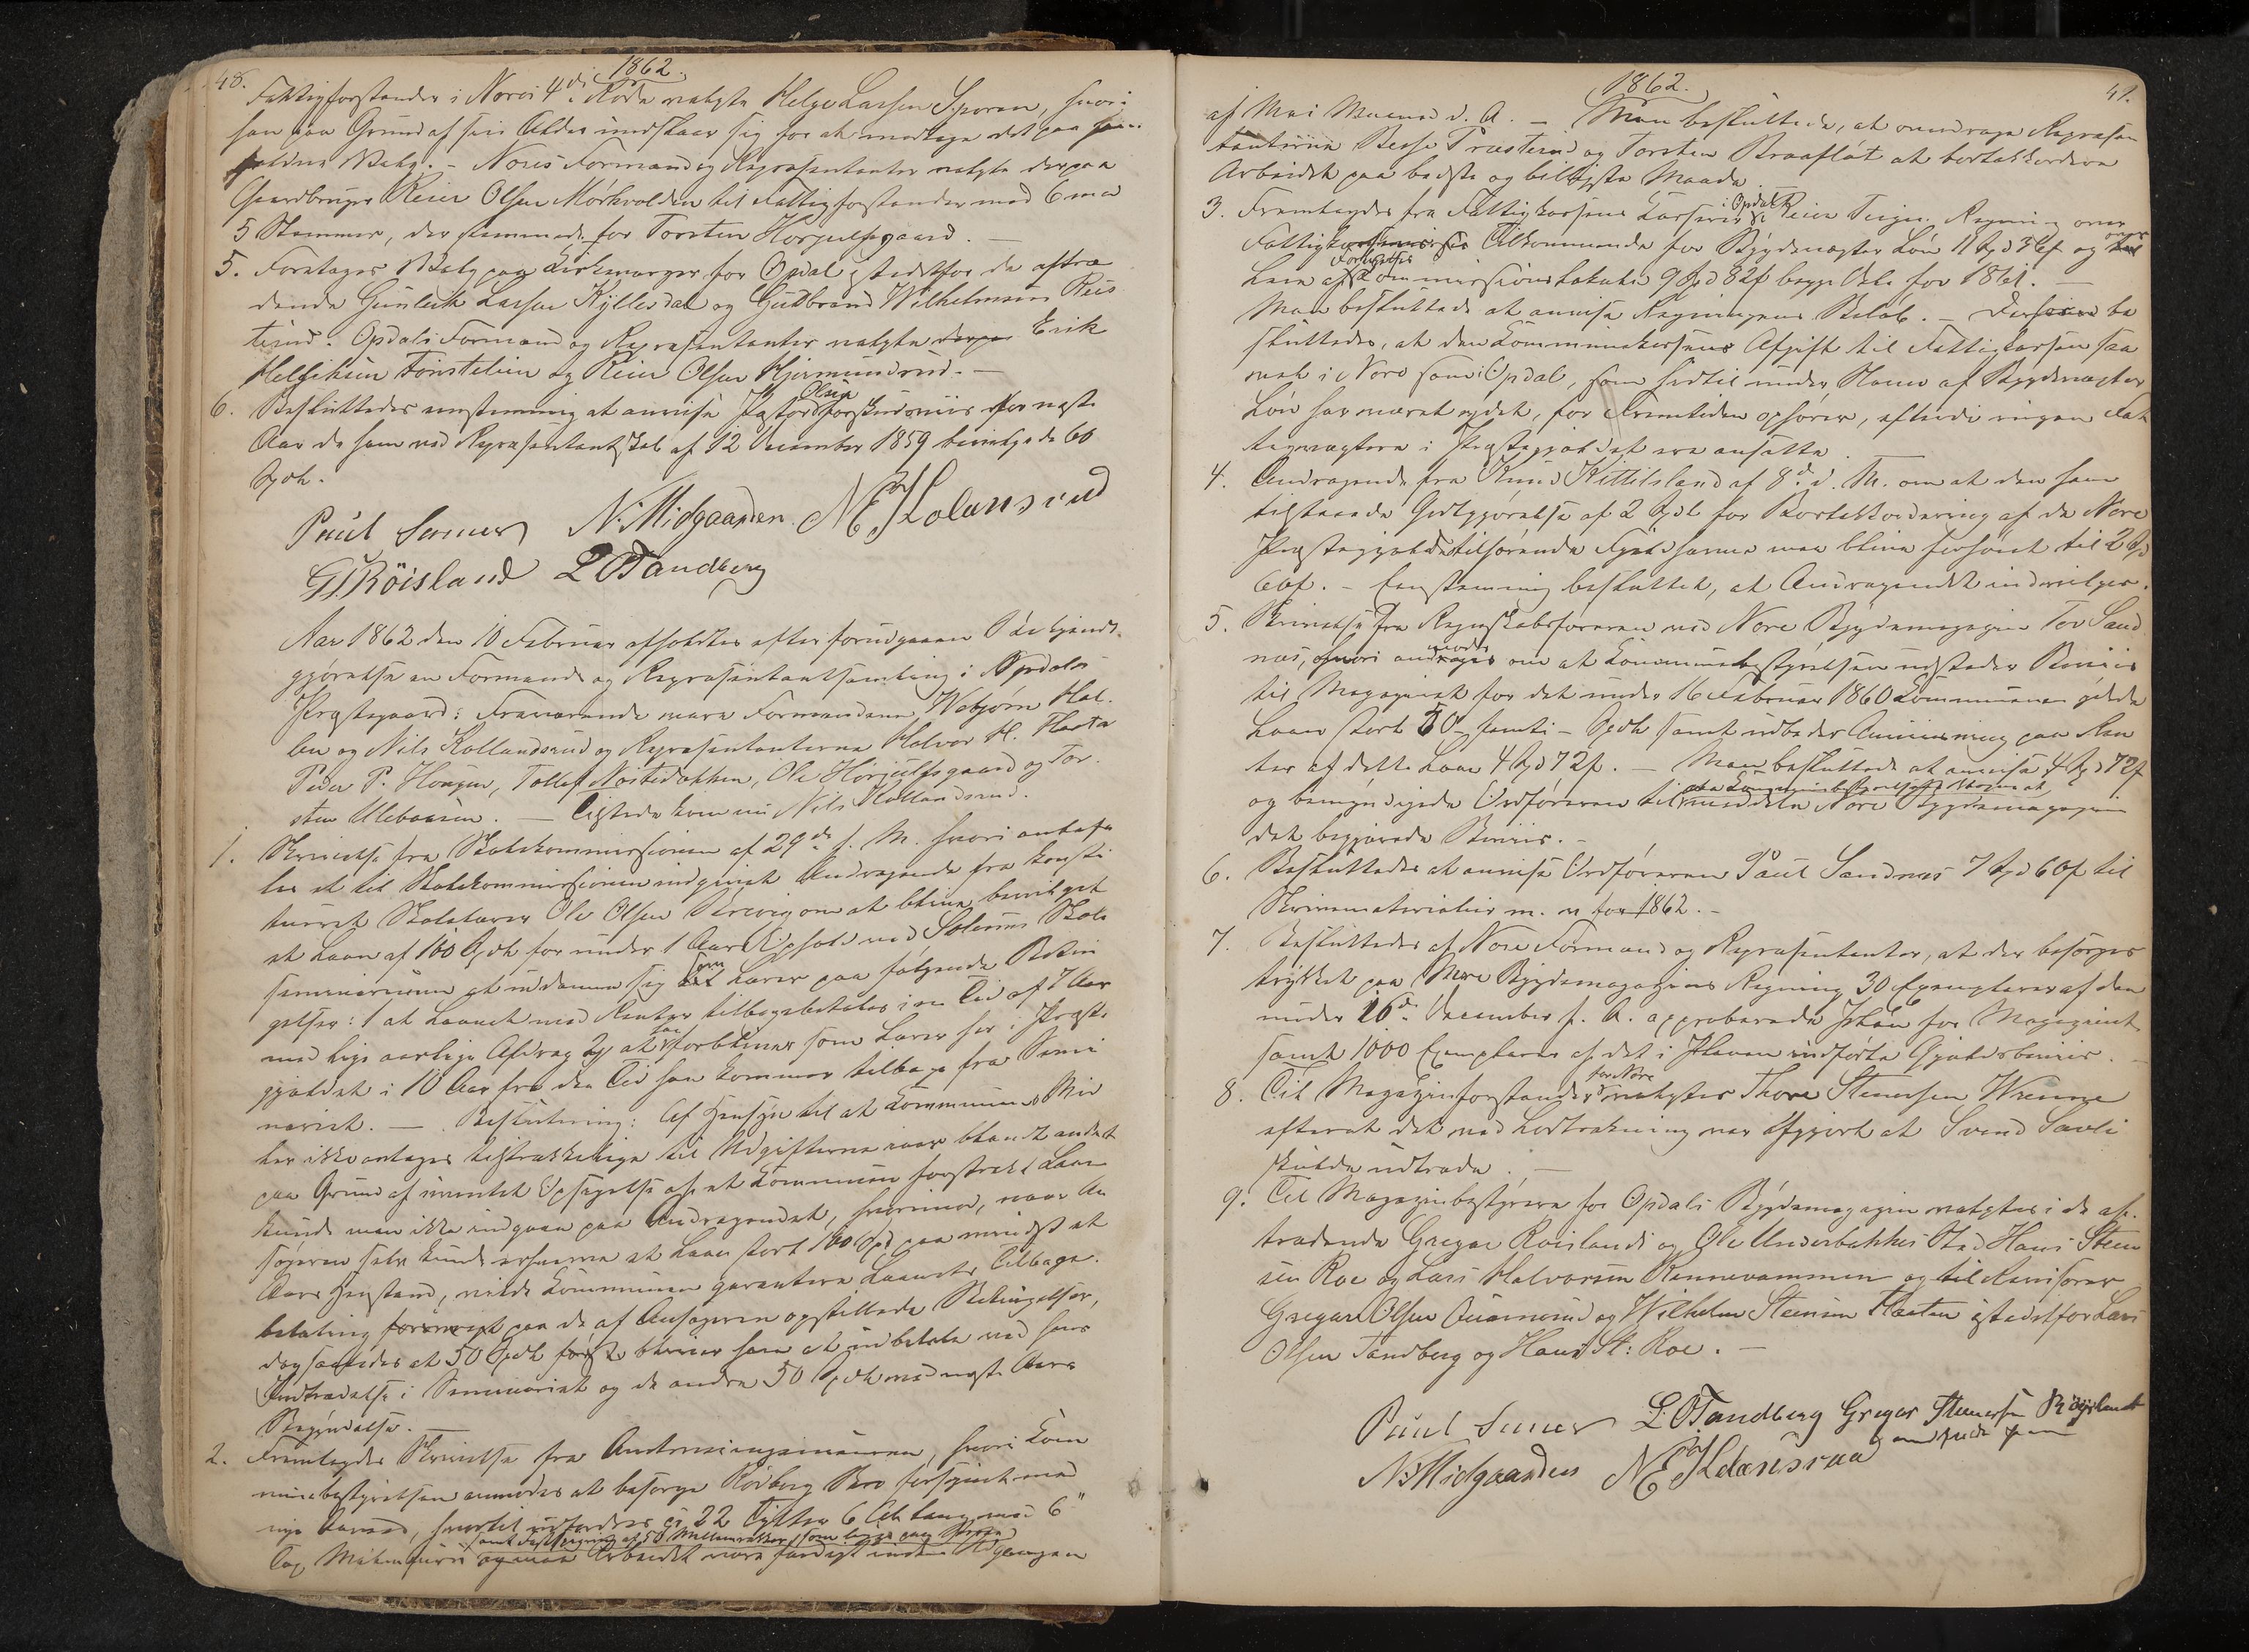 48.
1862.
Fattigforstander i Nores 4de Rode valgte Helge Larsen Sporan, hvori-
han paa Grund af sin Alder undslaar sig for at modtage det paa ham
faldne Valg. - Nores Formænd og Repræsentanter valgte derpaa
Gaardbruger Reier Olsen Mørkvolden til Fattigforstander med 6 mod
5 Stemmer, der stemmede for Torsten Horjulfsgaard. -
5. Foretages Valg paa Kirkeværger for Opdal istedetfor de aftræ
dende Gunleik Larsen Kyllesdal og Gudbrand Wilhelmsen Reis
terud. Opdals Formænd og Repræsentanter valgte derpaa Erik
Helgesen Fønstelien og Reier Olsen Hjermundrud. -
6. Besluttedes enstemmig at anvise Pastor Olsen for næste
Aar de ham ved Repræsentantskab af 12 December 1859 bevilgede 60
Spdlr.
Paul Sannes N. Midgaarden. N E Kolansrud
G. S. Röisland L O Tandberg
Aar 1862 den 10 Februar afholdtes efter forudgaaen Bekjendt-
gjørelse en Formands og Repræsentantsamling i Opdals
Præstegaard: Fraværende vare Formændene Webjørn Hal-
len og Nils Kollandsrud og Repræsentanterne Halvor H.
Peder P. Hougen, Tollef Nøstedokken, Ole Horjulfsgaard og Tor-
sten Ulebaasen. - Tilstede kom nu Nils Kollandsrud.
1. Skrivelse fra Skolekommissionen af 29de f. M. hvori anbefa
les et til Skolekommissionen indgivet Andragende fra konsti
tueret Skolelærer Ole Olsen om at blive bevilget
et Laan af 100 Spdlr for under 1 Aars Ophold ved Seminarium Skole
seminarium at uddanne sig som Lærer paa følgende Betin
gelser: 1 at Laanet med Renter tilbagebetales i en Tid af 7 Aar
med lige aarlige Afdrag 2) at han forbliver som Lærer her i Præste
gjældet i 10 Aar fra den Tid han kommer tilbage fra Semi
nariet. - Beslutning: Af Hensyn til at Kommunens Mid
ler ikke antages tilstrækkelige til Udgifterne iaar blandt andet
paa Grund af ventet Opsigelse af et Kommunen forstrakt Laan
kunde man ikke indgaa paa Andragendet, hvorimod, naar An
søgeren selv kunde erhverve et Laan stort 100 Spd paa mindst et
Aars Henstand, vilde Kommunen garantere Laanets Tilbage-
betaling paa de af Ansøgeren opstillede Betingelser,
dog saaledes at 50 Spdlr bliver ham at udbetale ved hans
Indtrædelse i Seminariet og de andre 50 Spdlr ved næste Aars
Begyndelse. -
2. Fremlagdes Skrivelse fra Amtsveimanden, hvori Kom
munebestyrelsen anmodes at besørge Rødberg Bro forsynet med
nye Aaser, hvortil udfordres ca 22 Tylfter 6 Al. lange med 6"
samt Fastspigring af 50 som ligge paa Broen
Top og maa Arbeidet være færdigt inden Udgangen
1862.
41.
af Mai Maaned d. A. - Man besluttede, at overdrage Repræsen
tanterne Besse Træsterud og Torsten Braaflåt at bortakkordere
Arbeidet paa bedste og billigste Maade.
3. Fremlagdes fra Fattigkassens Kasserer i Opdal Reier Regning over
Fattigkassens Tilkommende for Bygdevægter Løn 11 Spd 36f og
Leie af Kommissionslokale 9 Spd 82f begge Dele for 1861. -
Man besluttede at anvise Regningens Beløb. - be
sluttedes, at den Kommunekassens Afgift til Fattigkassen saa
vel i Nore som i Opdal, som hidtil under Navn af Bygdevægter
Løn har været ydet, for Fremtiden ophører, eftersom ingen Fat
tigvægtere i Præstegjældet ere ansatte.
4. Andragende fra Knud Kittilsland af 8de d. M. om at den ham
tilstaaede Godtgjørelse af 2 Spdlr for Bortakkordering af de Nore
Præstegjæld tilhørende maa blive forhøiet til 2 Spd
60f. - Eenstemmig besluttet, at Andragendet indvilges.
5. Skrivelse fra Regnskabsføreren ved Nore Bygdemagazin Tov Sand
næs, hvori anmodes om at Kommunebestyrelsen udsteder Beviis
til Magazinet for det under 16 Februar 1860 Kommunen ydede
Laan stort 50 - femti - Spdlr samt udbeder Anvisning paa Ren
ter af dette Laan 4 Spd 72f. - Man besluttede at anvise 4 Spd 72f
og bemyndigede Ordføreren til at meddele Nore Bygdemagazin
det begjærede Beviis. -
6. Besluttedes at anvise Ordføreren Paul Sandnæs 7 Spd 60f til
Skrivematerialier m. v. for 1862. -
7. Besluttedes af Nore Formænd og Repræsentanter, at der besørges
trykket paa Nore Bygdemagazins Regning 30 Exemplarer af den
under 16de December f. A. approberede Plan for Magazinet
samt 1000 Exemplarer af det i Planen indførte Gjældsbeviis. -
8. Til Magazinforstander for Nore valgtes Thore Steensen Wrenne
efterat det ved Lodtrækning var afgjort at Svend Sævli
skulde udtræde. -
9. Til Magazinbestyrere for Opdals Bygdemagazin valgtes i de af-
trædende Gregar Röislands og Ole Underbakkes Sted Hans Steen
sen Roe og Lars Halvorsen Rennevammen og til Revisorer
Gregar Olsen og Wilhelm Steensen Flaaten istedetfor Lars
Olsen Tandberg og Hans St: Roe. -
Paul Sannes L. O Tandberg Gregar Steenersen Röysland
N. Midgaarden N E Kolansrud